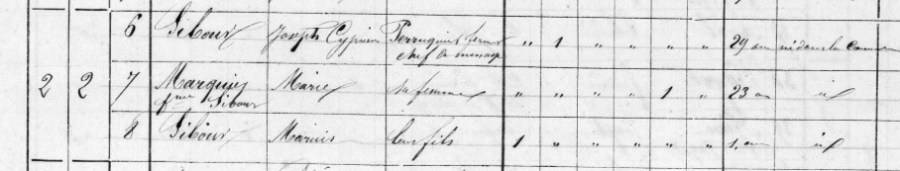 6 Sibour Joseph Cyprien Perruquier " 1 " " " " 29 ans né dans la
chef de ménage
2 2 7 Marquis Marie sa femme " " " " 1 " 23 ans id
fme Sibour
8 Sibour Marius leur fils 1 " " " " " 1 an id